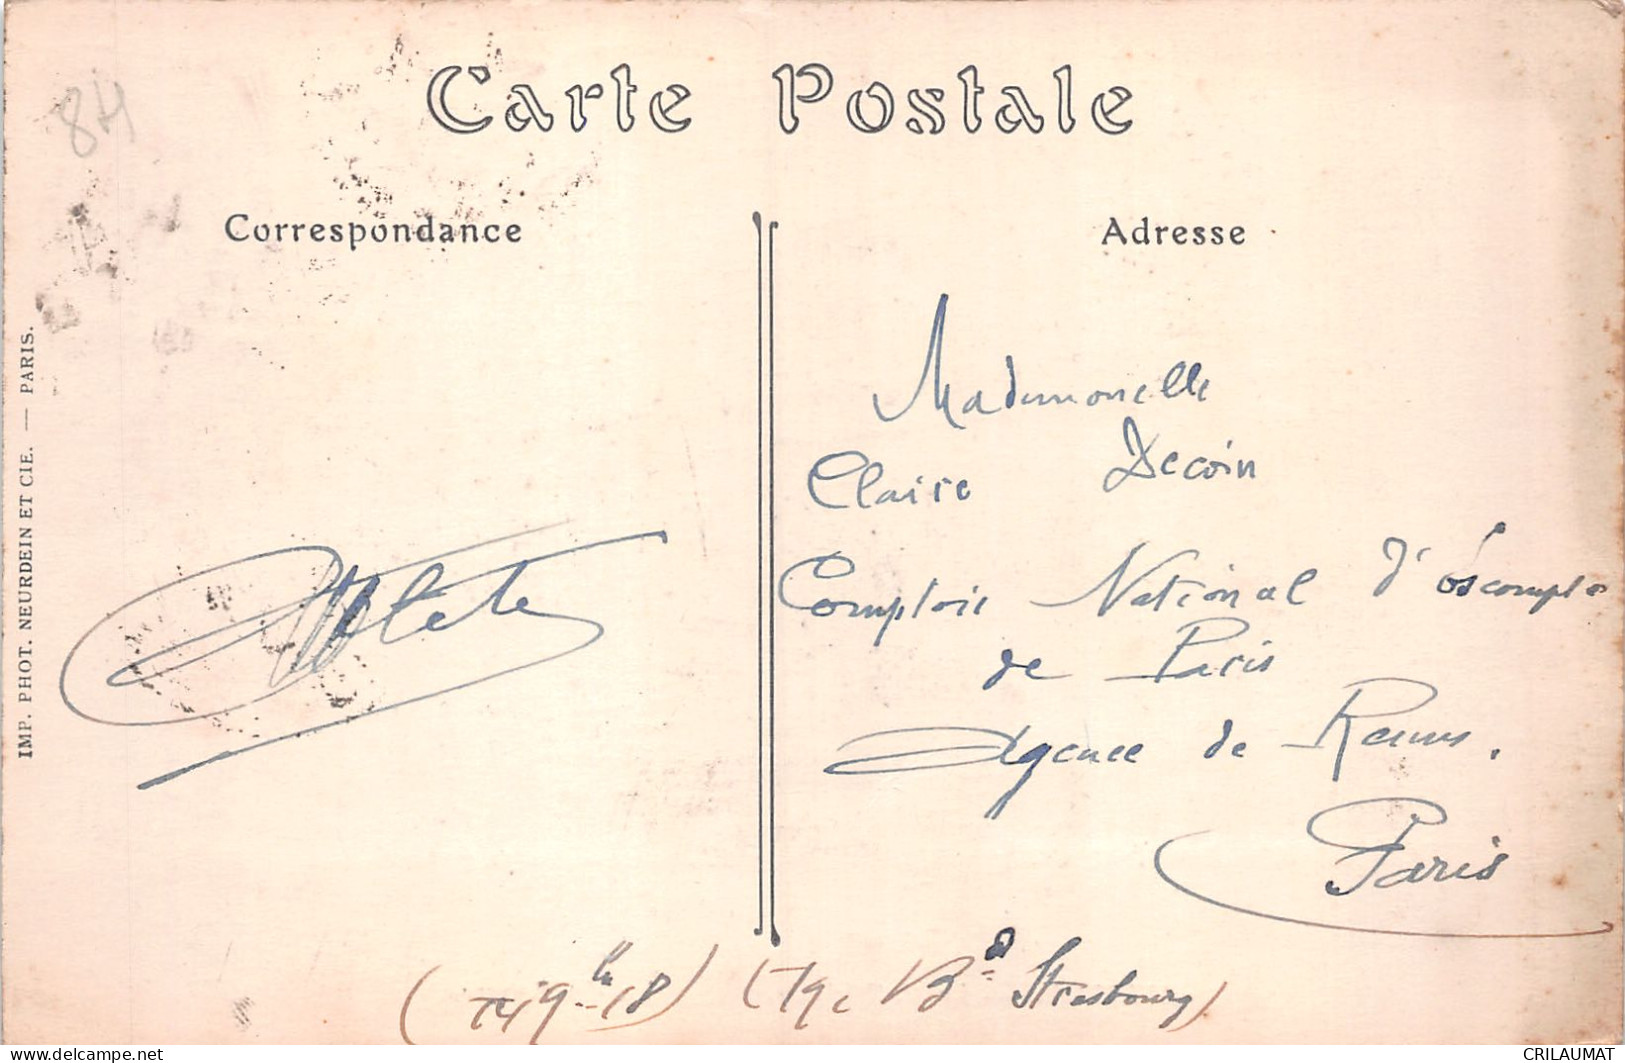 Carte Postale
84
Correspondance
Adresse
IMP. PHOT. NEURDEIN ET CIE. — PARIS.
Mademoiselle
Claire Decoin
Comptoir National d'Escompte
de Paris
Agence de Rennes.
Paris
Bd Strasbourg)
CRILAUMAT